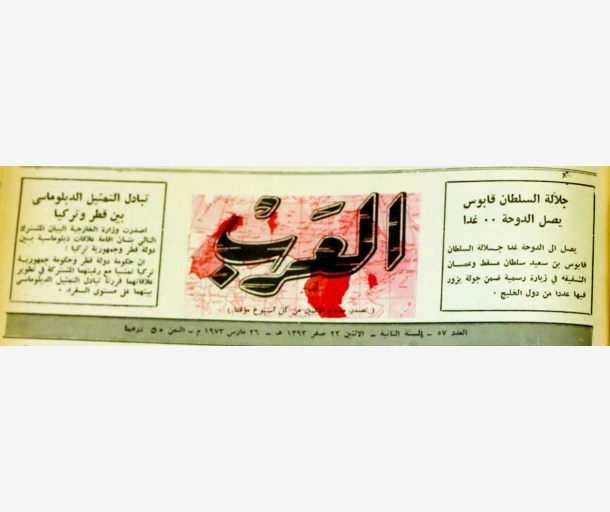 جلالة السلطان قابوس
يصل الدوحة ٠٠ غدا
يصل الى الدوحة غدا جـلالة السلطان
قابوس بن سعيد سلطان مسقط وعمـان
الشقيقة في زيارة رسمية ضمن جولة يزور
فيها عددا من دول الخليج ٠
العرب
( تصدر صباح الاثنين من كل اسبوع مؤقتا )
تبادل التمثيل الدبلوماسى
بين قطر وتركيا
اصدرت وزارة الخارجية البيان المشترك
التالي بشان اقامة علاقات دبلوماسية بـين
دولة قطر وجمهورية تركيا :
ان حكومة دولة قطر وحكومة جمهورية
تركيا تمشيا مع رغبتهما المشتركة في تطوير
علاقاتهما قررتا تبادل التمثيل الدبلوماسي
بينهما على مستوى السفراء ٠
العدد ٥٧ ـ السنة الثانية ـ الاثنين ٢٢ صفر ١٣٩٣ هـ ـ ٢٦ مارس ١٩٧٣ م ـ الثمن ٥٠ درهما